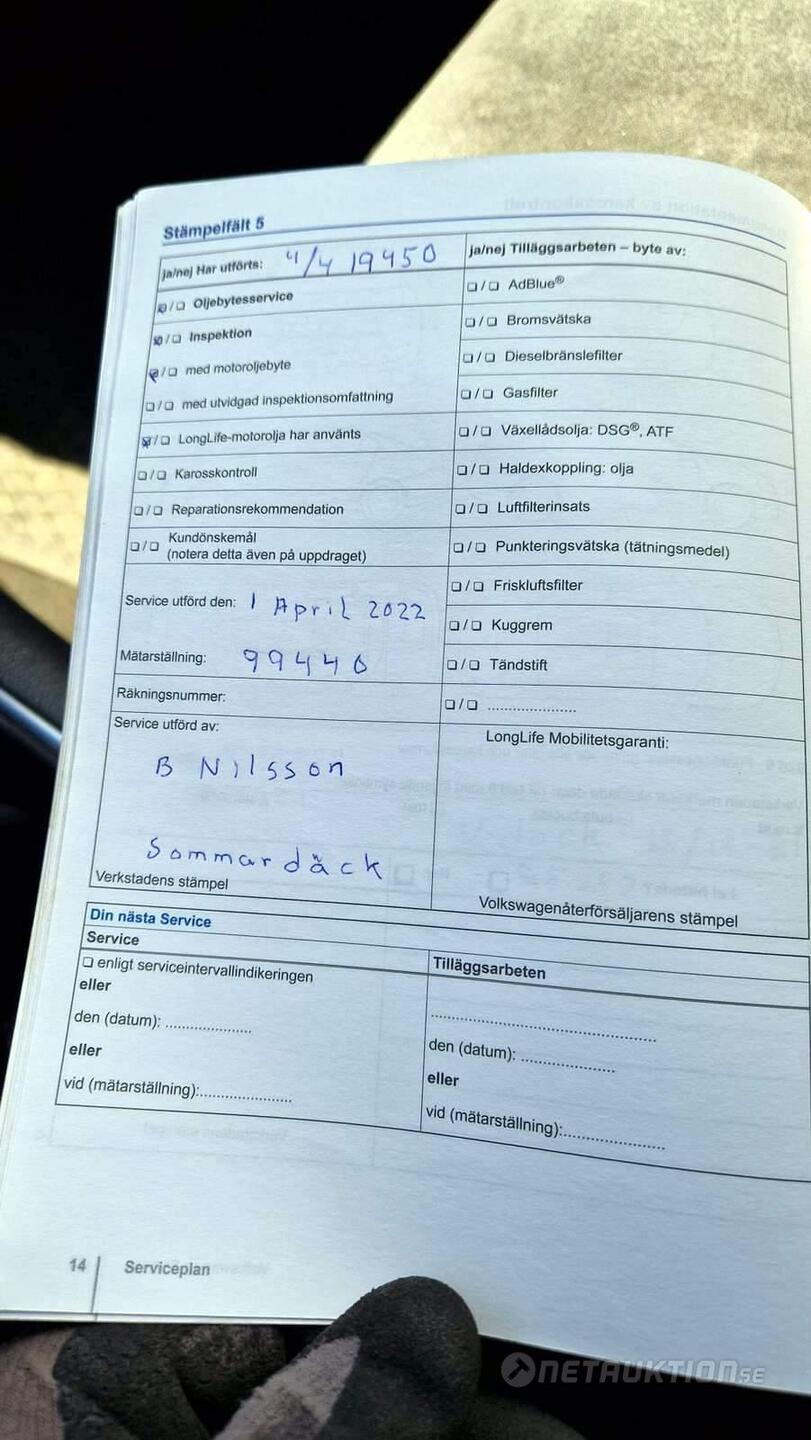 Stämpelfält 5
ja/nej Har utförts: 4/4 19450
❑/❑ Oljebytesservice
❑/❑ Inspektion
❑/❑ med motoroljebyte
❑/❑ med utvidgad inspektionsomfattning
❑/❑ LongLife-motorolja har använts
❑/❑ Karosskontroll
❑/❑ Reparationsrekommendation
❑/❑ Kundönskemål
(notera detta även på uppdraget)
Service utförd den: 1 April 2022
Mätarställning: 99440
Räkningsnummer:
Service utförd av:
B Nilsson
Sommardäck
Verkstadens stämpel
ja/nej Tilläggsarbeten – byte av:
❑/❑ AdBlue®
❑/❑ Bromsvätska
❑/❑ Dieselbränslefilter
❑/❑ Gasfilter
❑/❑ Växellådsolja: DSG®, ATF
❑/❑ Haldexkoppling: olja
❑/❑ Luftfilterinsats
❑/❑ Punkteringsvätska (tätningsmedel)
❑/❑ Friskluftsfilter
❑/❑ Kuggrem
❑/❑ Tändstift
❑/❑ .....................
LongLife Mobilitetsgaranti:
Volkswagenåterförsäljarens stämpel
Din nästa Service
Service
❑ enligt serviceintervallindikeringen
eller
den (datum): .....................
eller
vid (mätarställning):......................
Tilläggsarbeten
.....................................................
den (datum): ......................
eller
vid (mätarställning):.......................
14 Serviceplan
NETAUKTION.SE